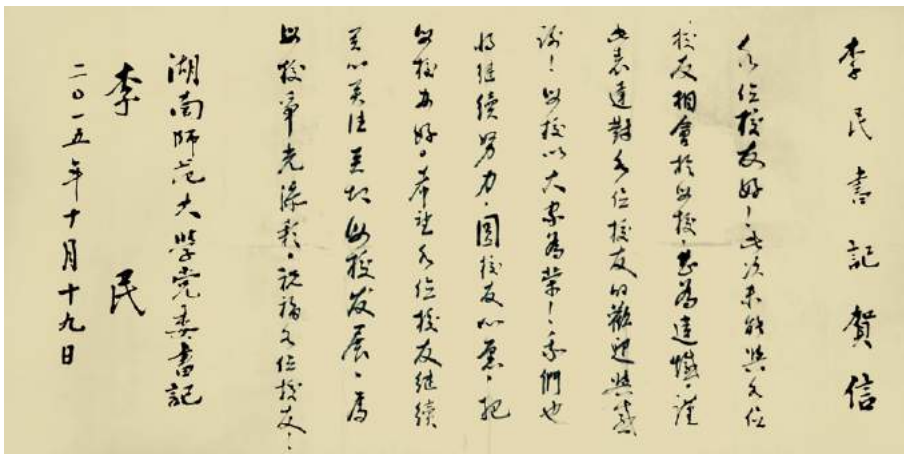 李民書記賀信
各位校友好！此次未能與各位
校友相會於母校，甚為遺憾，謹
此表達對各位校友的歡迎與感
謝！母校以大家為榮！我們也
將繼續努力，圓校友心愿，把
母校办好。希望各位校友继续
关心关注支持母校发展，為
母校爭光添彩。祝福各位校友！
湖南師范大學党委書記
李民
二〇一五年十月十九日